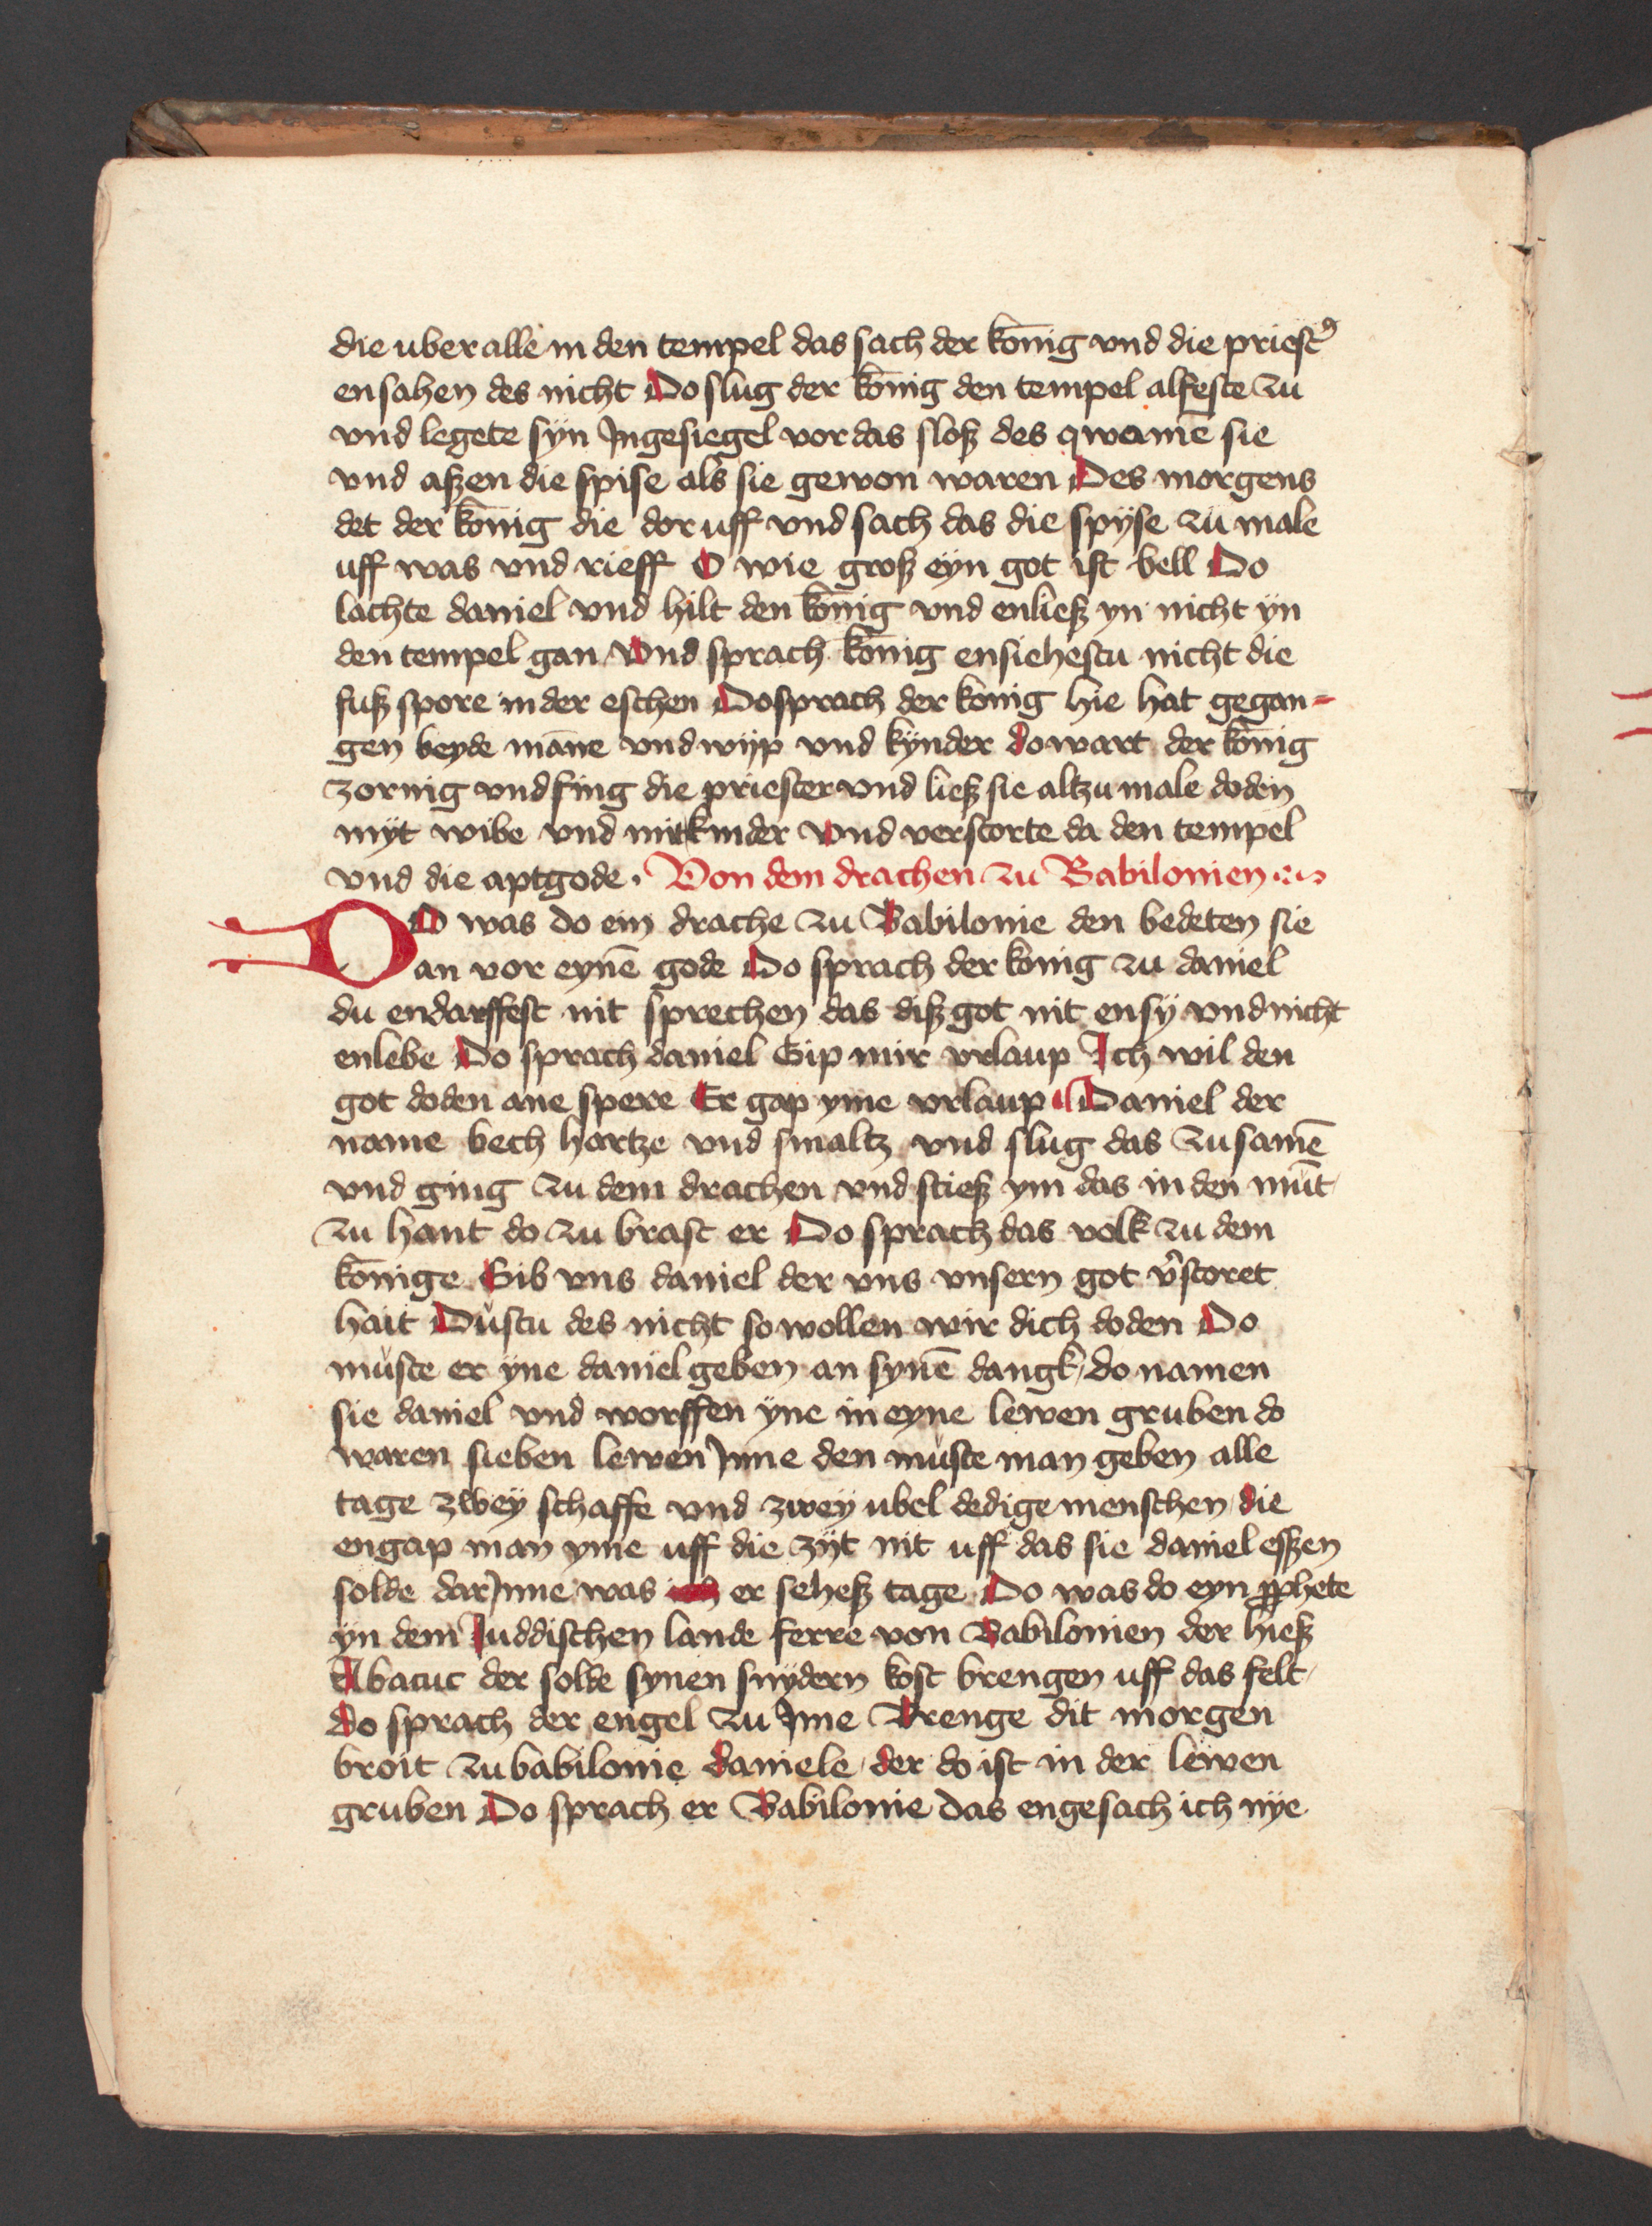 die uber alle in den tempel das sach der konig vnd die priest᾽
en sahen des nicht Do slug der konig den tempel alfeste zu
vnd legete syn Jngesiegel vor das sloß des qwamē sie
vnd aßen die spise als sie gewon waren Des morgens
det der konig die dor uff vnd sach das die spyse zu male
uff was vnd rieff O wie groß eyn got ist bell Do
lachte daniel vnd hilt den konig vnd enließ yn nicht yn
den tempel gan Vnd sprach konig ensiehestu nicht die
fuß spore in der eschen Do sprach der konig hie hat gegan=
gen beyde māne vnd wijp vnd kynder do wart der konig
zornig vnd fing die priester vnd ließ sie altzu male doden
myt wibe vnd mit kinder vnd verstorte da den tempel
vnd die aptgode. Von dem drachen zu Babilonien
DO was do ein drache zu Babilonie den bedeten sie
an vor eynē gode Do sprach der konig zu daniel
du endarffest nit sprechen das diß got nit ensy vnd nicht
enlebe Do sprach daniel Gip mir vrlaup Ich wil den
got doden ane spere Er gap yme vrlaup Daniel der
name bech hartze vnd smaltz vnd slug das zu samē
vnd ging zu dem drachen vnd stieß ym das in den mūt
zu hant do zu brast er Do sprach das volk zu dem
konige Gib vns daniel der vns vnsern got v̄storet
hait Dustu des nicht so wollen wir dich doden Do
muste er yne daniel geben an synē dangk do namen
sie daniel vnd worffen yne in eyne lewen gruben do
waren sieben lewen Jnne den muste man geben alle
tage zwey schaffe vnd zwey ubel dedige menschen die
engap man yme uff die zijt nit uff das sie daniel eßzen
solde dar Jnne was er seheß tage Do was do eyn ꝓphete
yn dem Juddischen lande ferre von Babilonien der hieß
Abacuc der solde synen snydern kost brengen uff das felt
do sprach der engel zu Jme Brenge dit morgen
broit zu babilonie daniele der do ist in der lewen
gruben Do sprach er Babilonie das engesach ich nye